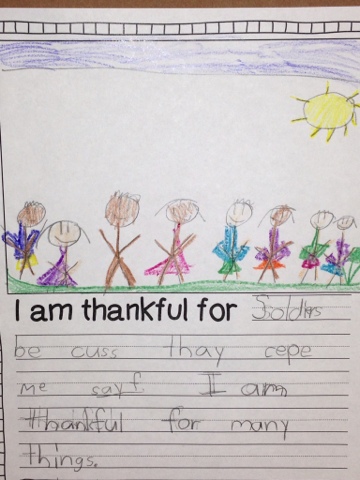 I am thankful for Soldirs
be cuss thay cepe
me sayf I am
thankful for many
things.